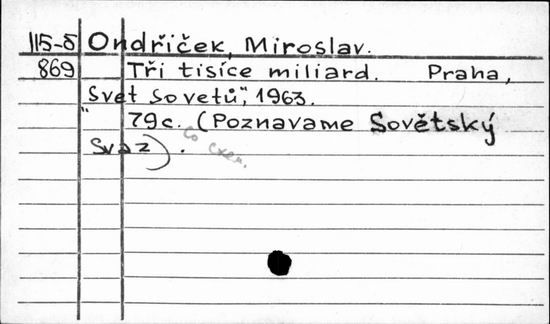 115-5 Ondřiček, Miroslav.
869 Tři tisíce miliard. Praha,
"Svet Sovetů", 1963.
79 c. (Poznavame Sovětský
Svaz).